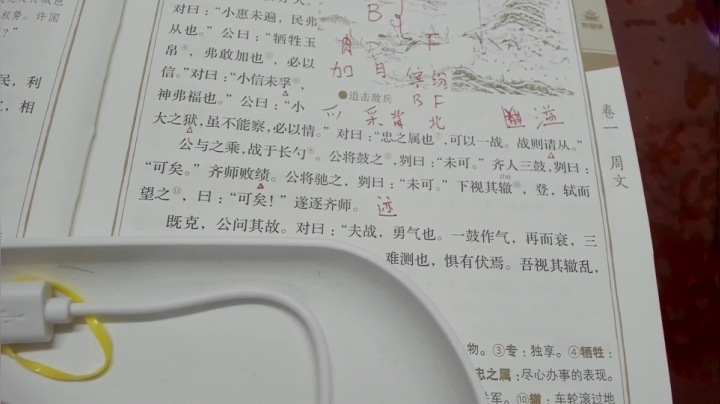 对曰：“小惠未遍，民弗
从也。”公曰：“牺牲玉
帛④，弗敢加也⑤，必以
信。”对曰：“小信未孚⑥，
神弗福也。”公曰：“小
大之狱，虽不能察，必以情。”对曰：“忠之属也⑦，可以一战。战则请从。”
公与之乘，战于长勺⑧。公将鼓之⑨，刿曰：“未可。”齐人三鼓，刿曰：
“可矣。”齐师败绩。公将驰之，刿曰：“未可。”下视其辙⑩，登，轼而
望之⑪，曰：“可矣！”遂逐齐师。
既克，公问其故。对曰：“夫战，勇气也。一鼓作气，再而衰，三
难测也，惧有伏焉。吾视其辙乱，
物。③专：独享。④牺牲：
忠之属：尽心办事的表现。
军。⑩辙：车轮滚过地
追击敌兵
zhé
B
F
加 目 缤纷
B F
采 背 北
溢
迹
卷一 周文
权势。许国
民，利
相